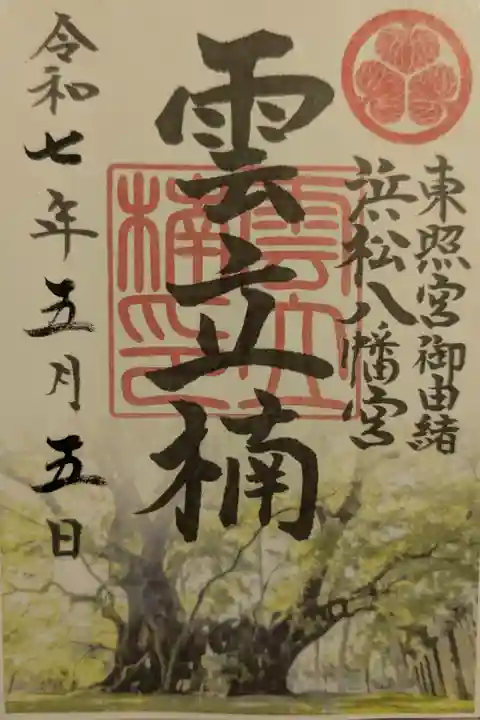 東照宮御由緒
浜松八幡宮
雲立楠
雲立
楠印
令和七年五月五日